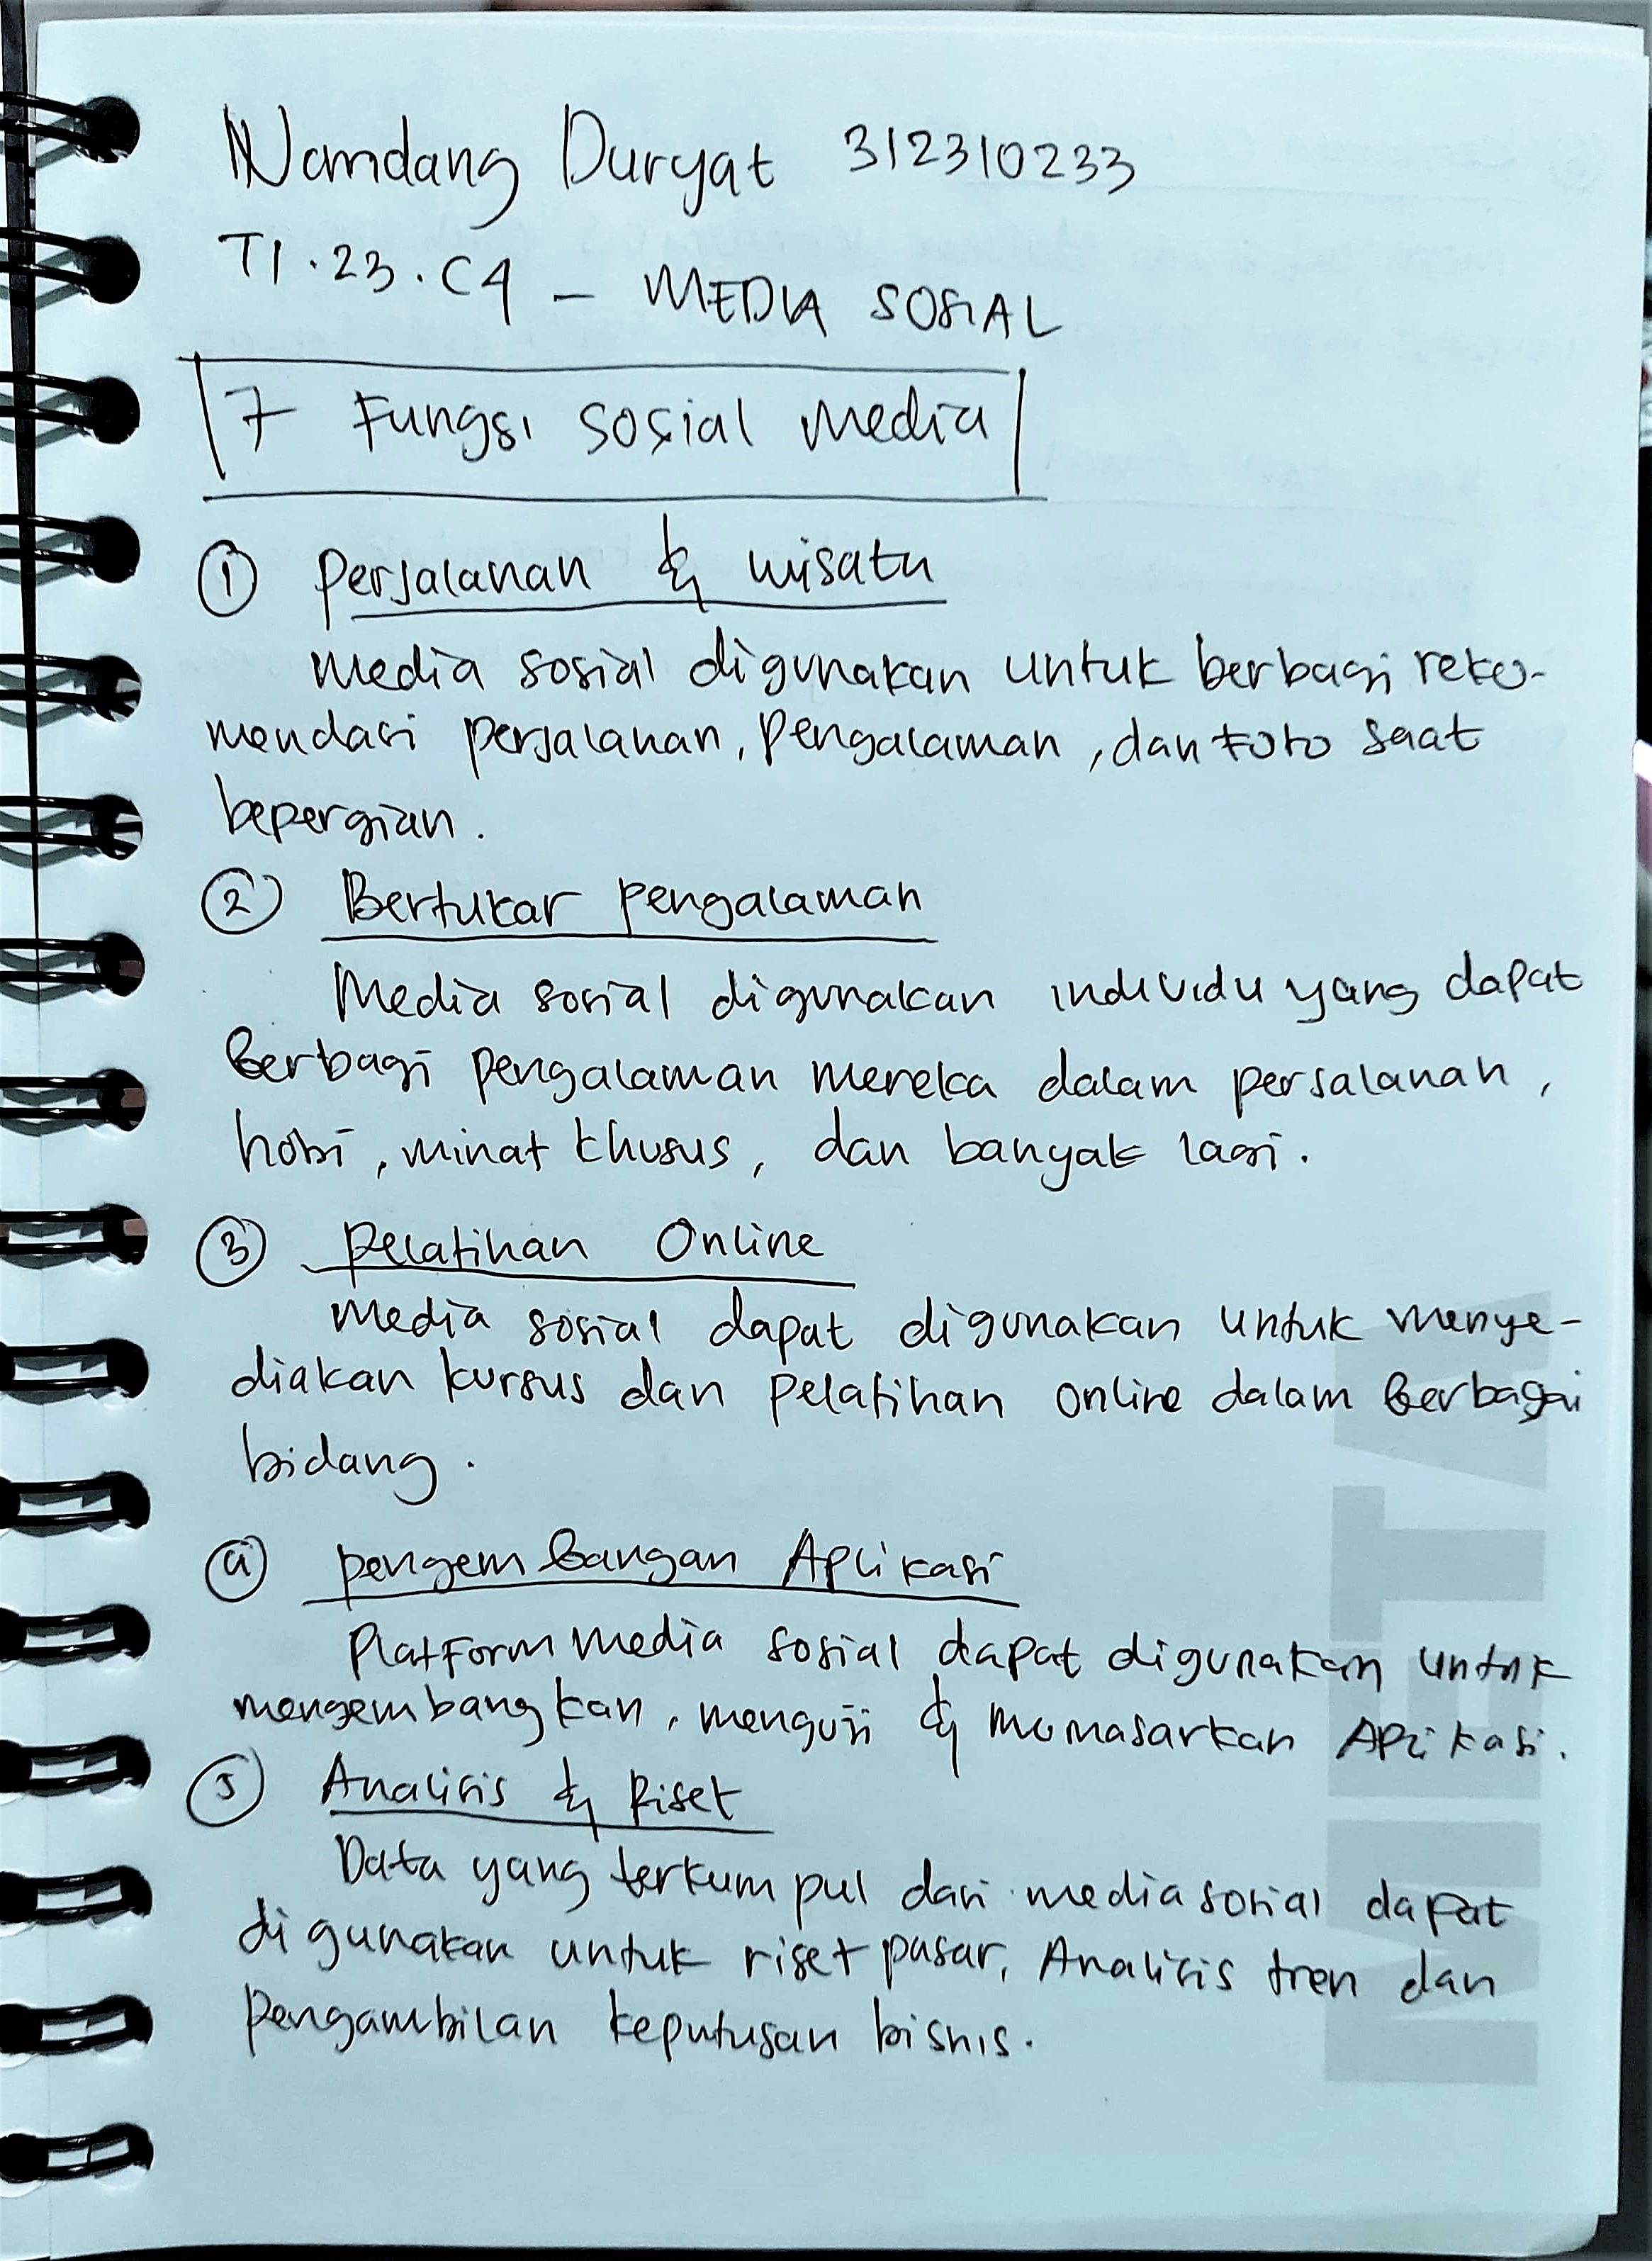 Nandang Duryat 312310233
TI.23.C4 - MEDIA SOSIAL
7 Fungsi sosial media
① Perjalanan & wisata
Media sosial digunakan untuk berbagi reko-
mendasi perjalanan, pengalaman, dan foto saat
bepergian.
② Bertukar pengalaman
Media sosial digunakan individu yang dapat
Berbagi pengalaman mereka dalam perjalanan,
hobi, minat khusus, dan banyak lagi.
③ Pelatihan Online
Media sosial dapat digunakan untuk menye-
diakan kursus dan pelatihan online dalam Berbagai
bidang.
④ Pengembangan Aplikasi
Platform media sosial dapat digunakan untuk
mengembangkan, menguji & memasarkan Aplikasi.
⑤ Analisis & Riset
Data yang terkumpul dari media sosial dapat
digunakan untuk riset pasar, Analisis tren dan
Pengambilan keputusan bisnis.
META